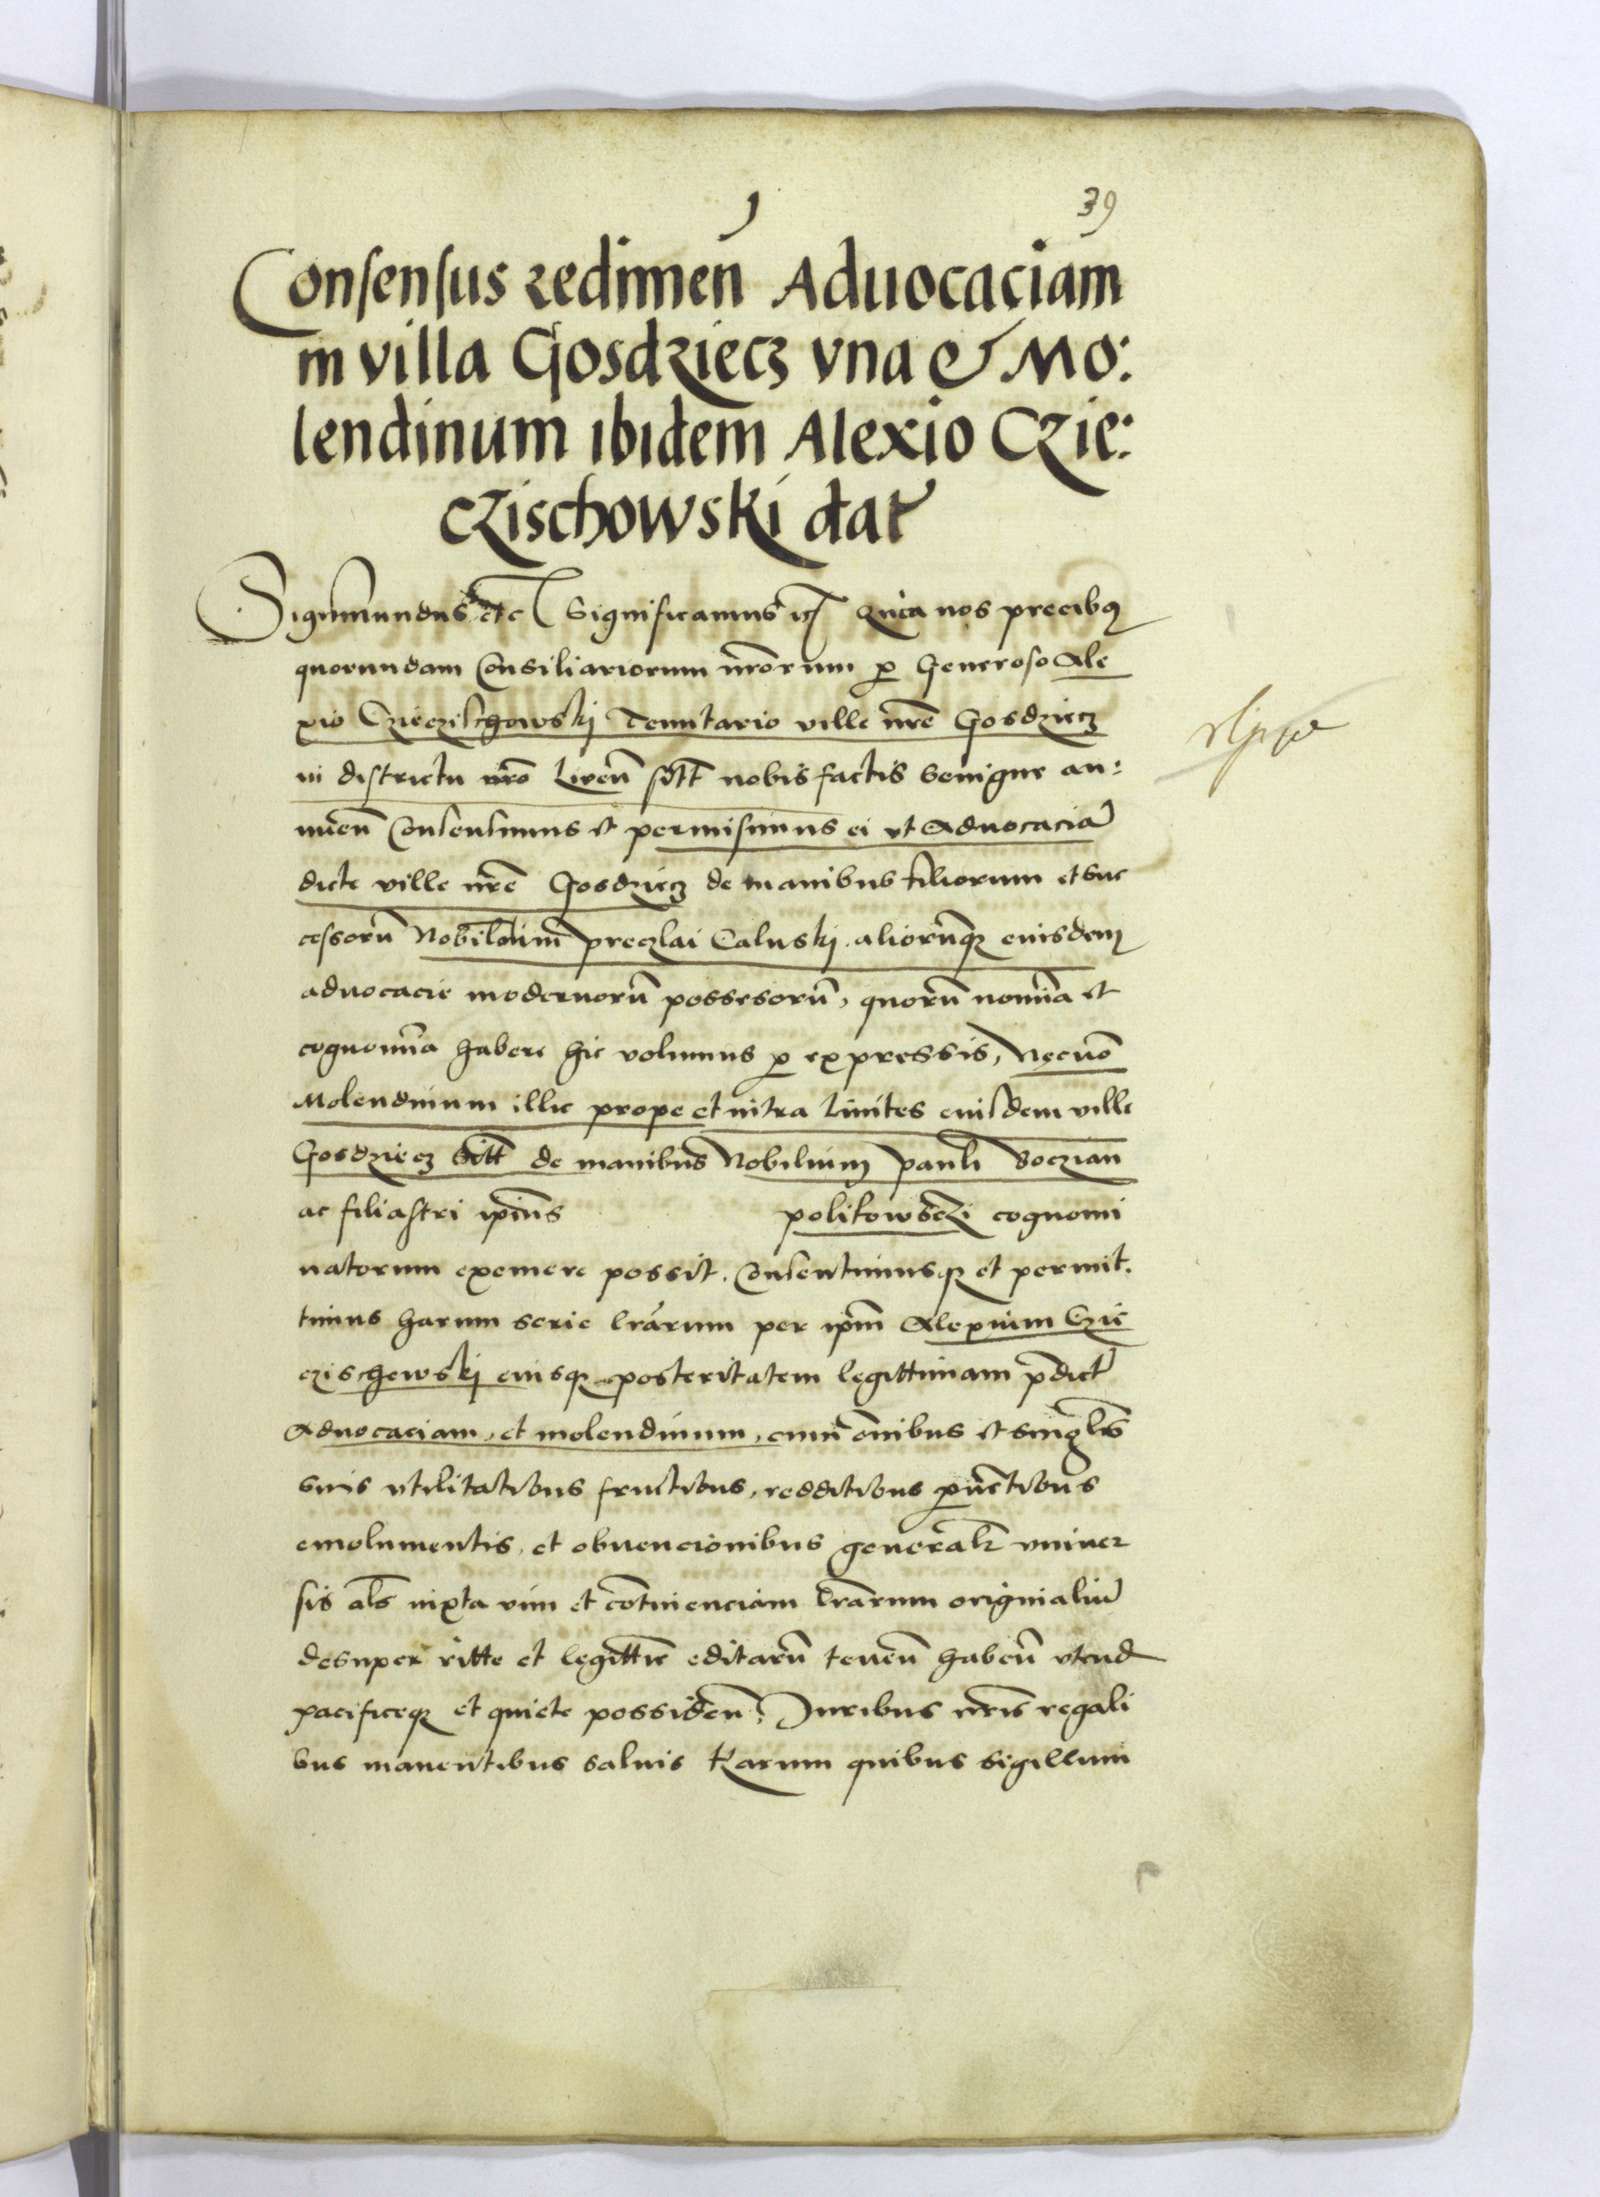 1 39
Consensus redimen Aduocaciam
in villa Gosdziecz vna & Mo:
lendinum ibidem Alexio Czie:
czischowski dat
Sigismundus etc Significamus etc Quia nos precibus
quorundam Consiliariorum nrorum p Generoso Ale
xio Czieczischowskj Tenutario ville nre Gosdziecz
in districtu nro Liuen sitt nobis factis benigne an:
nuen Consensimus et permisimus ei vt Aduocacia
dicte ville nre Gosdziecz de manibus filiorum et suc
cessoru Nobilium preczlai Caluskj aliorumq eiusdem
aduocacie modernoru possesoru, quoru nomina et
cognomina habere hic volumus p expressis, Necno
Molendinum illic prope et intra limites eiusdem ville
Gosdziecz sitt de manibus Nobilium pauli Boczian
ac filiastri ipius politowsczi cognomi
natorum exemere possit. Consentimusq et permit.
timus harum serie lrarum per ipm Alexium Czie
czischowskj eiusq posteritatem legittimam pdict
Aduocaciam, et molendinum, cum omibus et singlis
suis vtilitatibus fructibus, redditibus puentibus
emolumentis, et obuencionibus generalr vniuer
sis als iuxta vim et continenciam lrarum originaliu
desuper ritte et legittie editaru tenen haben vtend
pacificeq et quiete possiden, Iuribus nris regali
bus manentibus saluis Harum quibus sigillum